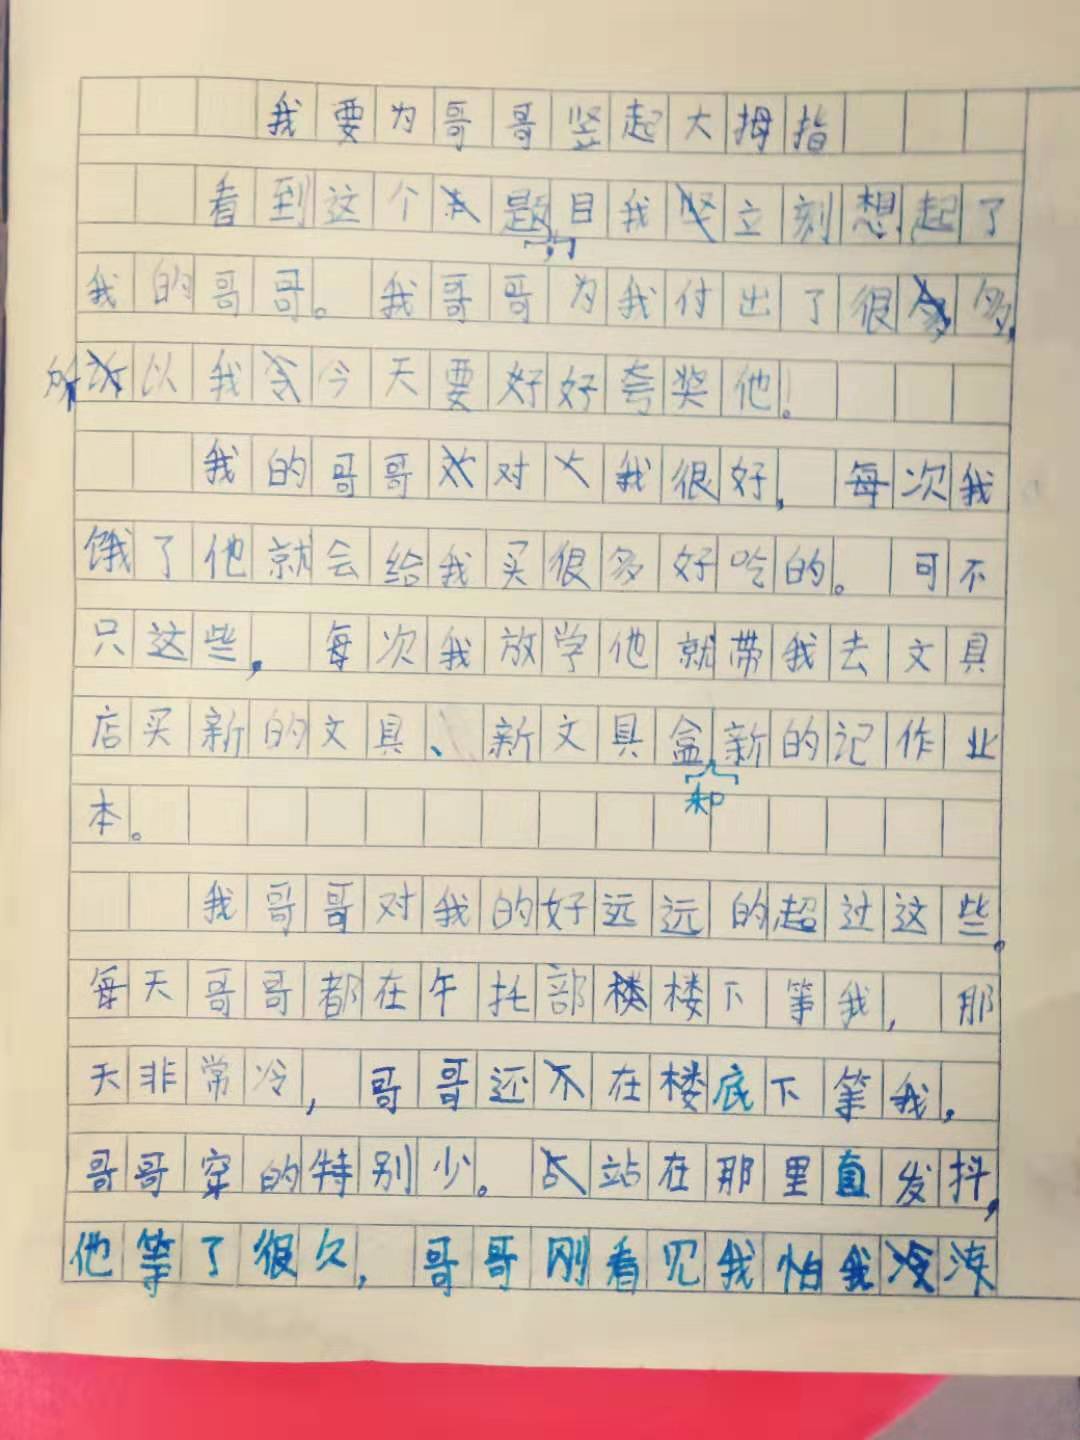 我要为哥哥竖起大拇指
看到这个题目,我立刻想起了
我的哥哥。我哥哥为我付出了很多,
所以我今天要好好夸奖他!
我的哥哥对我很好,每次我
饿了他就会给我买很多好吃的。可不
只这些,每次我放学他就带我去文具
店买新的文具、新文具盒和新的记作业
本。
我哥哥对我的好远远的超过这些。
每天哥哥都在午托部楼下等我,那
天非常冷,哥哥还在楼底下等我,
哥哥穿的特别少。站在那里直发抖,
他等了很久,哥哥刚看见我怕我冻